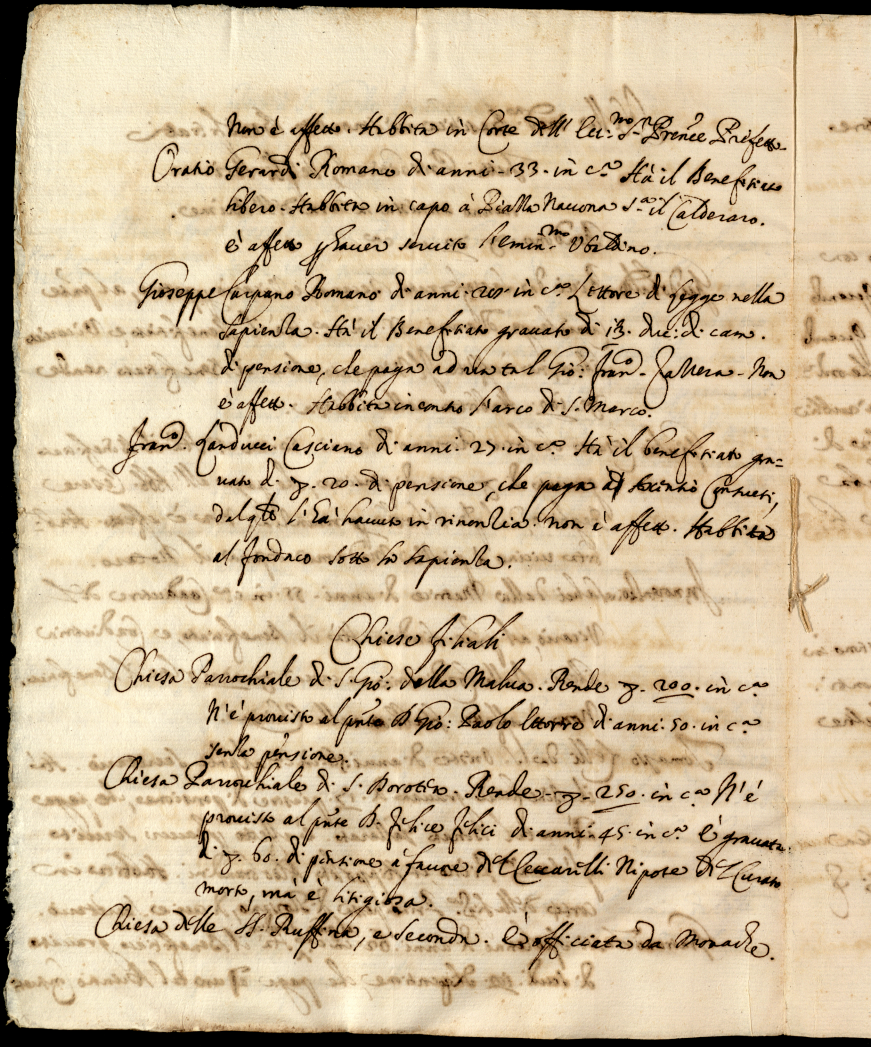 Non è affetto. Habbita in Corte dell' Ecc.mo S.r Prencè Prefetto.
Oratio Gerardi Romano di anni. 33. in c.a Hà il Benefitiato
libero. Habbita in capo à Piazza Navona S.a il Calderaro.
è affetto p haver servito l'Emin.mo Ubaldino.
Gioseppe Carpano Romano di anni in c.a Lettore di legge nella
Sapienza. Hà il Benefitiato gravato di 13. duc: di cam.
di pensione, che paga ad un tal Gio: Fran.o Non
è affetto. Habbita incontro l'arco di S. Marco.
Fran.o Landucci Casciano di anni. 27. in c.a Hà il benefitiato gra=
vato di 20. di pensione, che paga ad
dal q̃le l'hà havuto in rinonzia. non è affetto. Habbita
al fondaco sotto la Sapienza.
Chiese filiali
Chiesa Parrochiale di S. Gio: della Malva. Rende 200. in c.a
N'è provisto al pñte D. Gio: Paolo di anni. 50. in c.a
senza pensione.
Chiesa Parrochiale di S. Dorotea. Rende 250. in c.a N'è
provisto al pñte D. Felice Felici di anni. 45. in c.a È gravata
di 60. di pensione à favore del Ceccarelli Nipote del Curato
morto, mà è litigiosa.
Chiesa delle SS. Ruffina, e Seconda. È officiata da Monache.